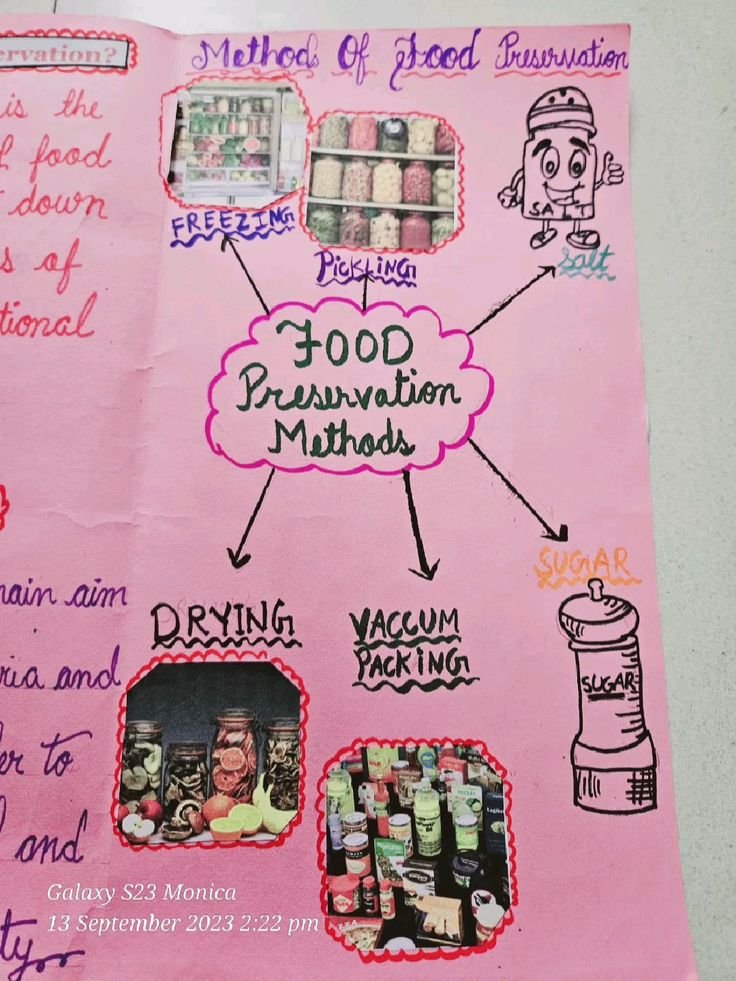 ervation?
is the
food
down
s of
tional
ain aim
ria and
er to
and
ty
Methods Of Food Preservation
FREEZING
PICKLING
SALT
Salt
FOOD
Preservation
Methods
SUGAR
SUGAR
DRYING
VACCUM
PACKING
Galaxy S23 Monica
13 September 2023 2:22 pm